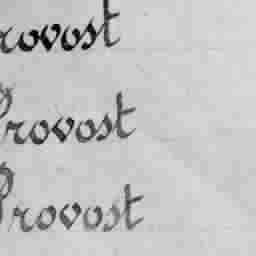 rovost
Provost
Provost